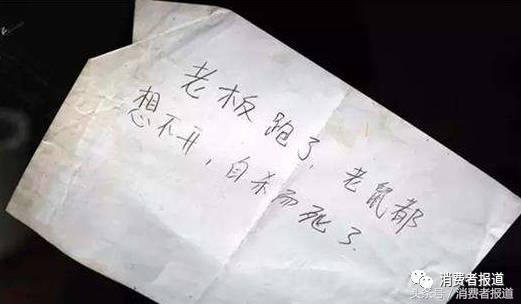 老板跑了，老鼠都
想不开，自杀而死了.
消费者报道
头条号／消费者报道